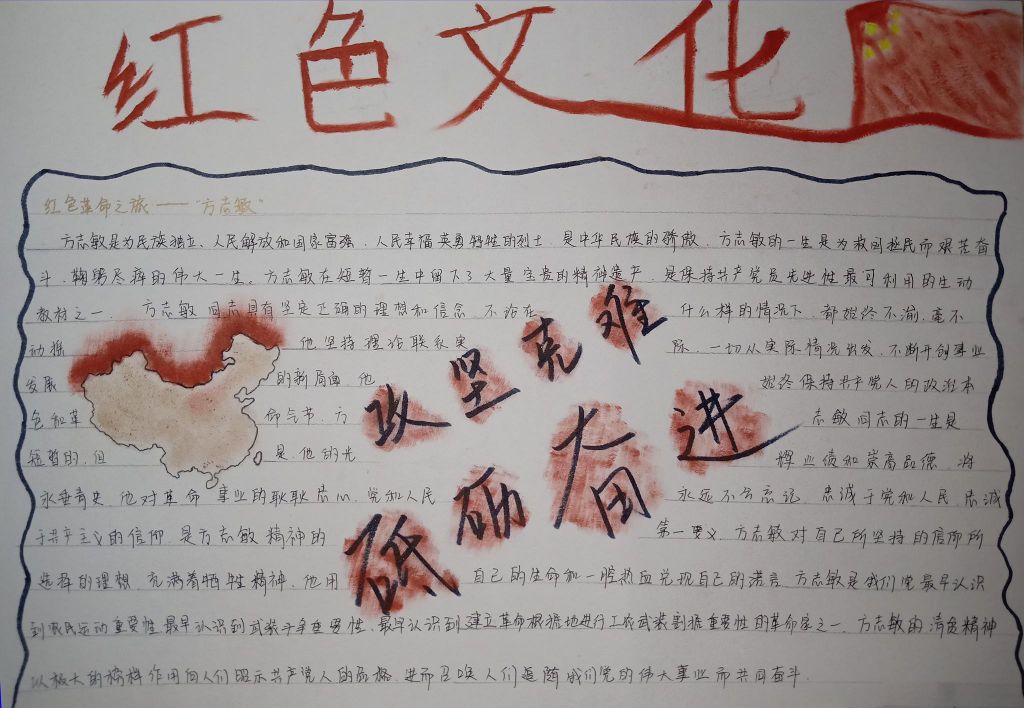 红色文化
红色革命之旅——"方志敏"
方志敏是为民族独立、人民解放和国家富强、人民幸福英勇牺牲的烈士,是中华民族的骄傲.方志敏的一生是为救国拯民而艰苦奋
斗,鞠躬尽瘁的伟大一生。方志敏在短暂一生中留下了大量宝贵的精神遗产,是保持共产党员先进性最可利用的生动
教材之一.方志敏同志具有坚定正确的理想和信念.不论在 什么样的情况下,都始终不渝,毫不
动摇 他坚持理论联系实 际,一切从实际情况出发,不断开创事业
发展 的新局面.他 始终保持共产党人的政治本
色和革 命气节.方 志敏同志的一生是
短暂的,但 是,他的光 辉业绩和崇高品德,将
永垂青史.他对革命事业的耿耿忠心,党和人民 永远不会忘记.忠诚于党和人民,忠诚
于共产主义的信仰,是方志敏精神的 第一要义.方志敏对自己所坚持的信仰所
选择的理想,充满着牺牲精神,他用 自己的生命和一腔热血兑现自己的诺言.方志敏是我们党最早认识
到农民运动重要性,最早认识到武装斗争重要性、最早认识到建立革命根据地进行工农武装割据重要性的革命家之一.方志敏的清贫精神
以极大的榜样作用向人们昭示共产党人的品格,进而召唤人们追随我们党的伟大事业而共同奋斗.
攻坚克难
砥砺奋进